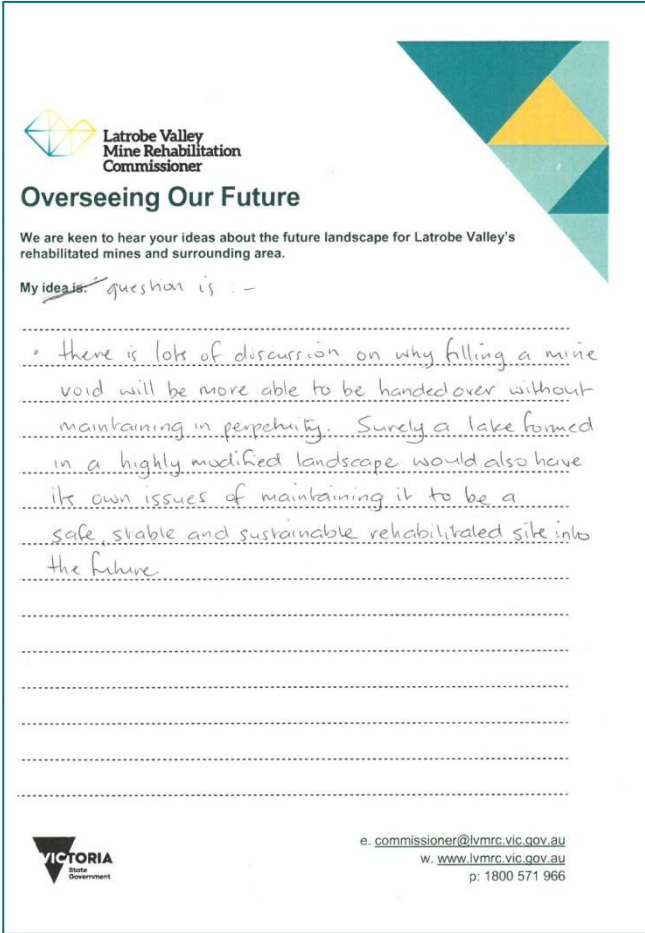 Latrobe Valley
Mine Rehabilitation
Commissioner
Overseeing Our Future
We are keen to hear your ideas about the future landscape for Latrobe Valley's
rehabilitated mines and surrounding area.
My idea is: question is :-
• there is lots of discussion on why filling a mine
void will be more able to be handed over without
maintaining in perpetuity. Surely a lake formed
in a highly modified landscape would also have
its own issues of maintaining it to be a
safe, stable and sustainable rehabilitated site into
the future
VICTORIA
State
Government
e. commissioner@lvmrc.vic.gov.au
w. www.lvmrc.vic.gov.au
p: 1800 571 966